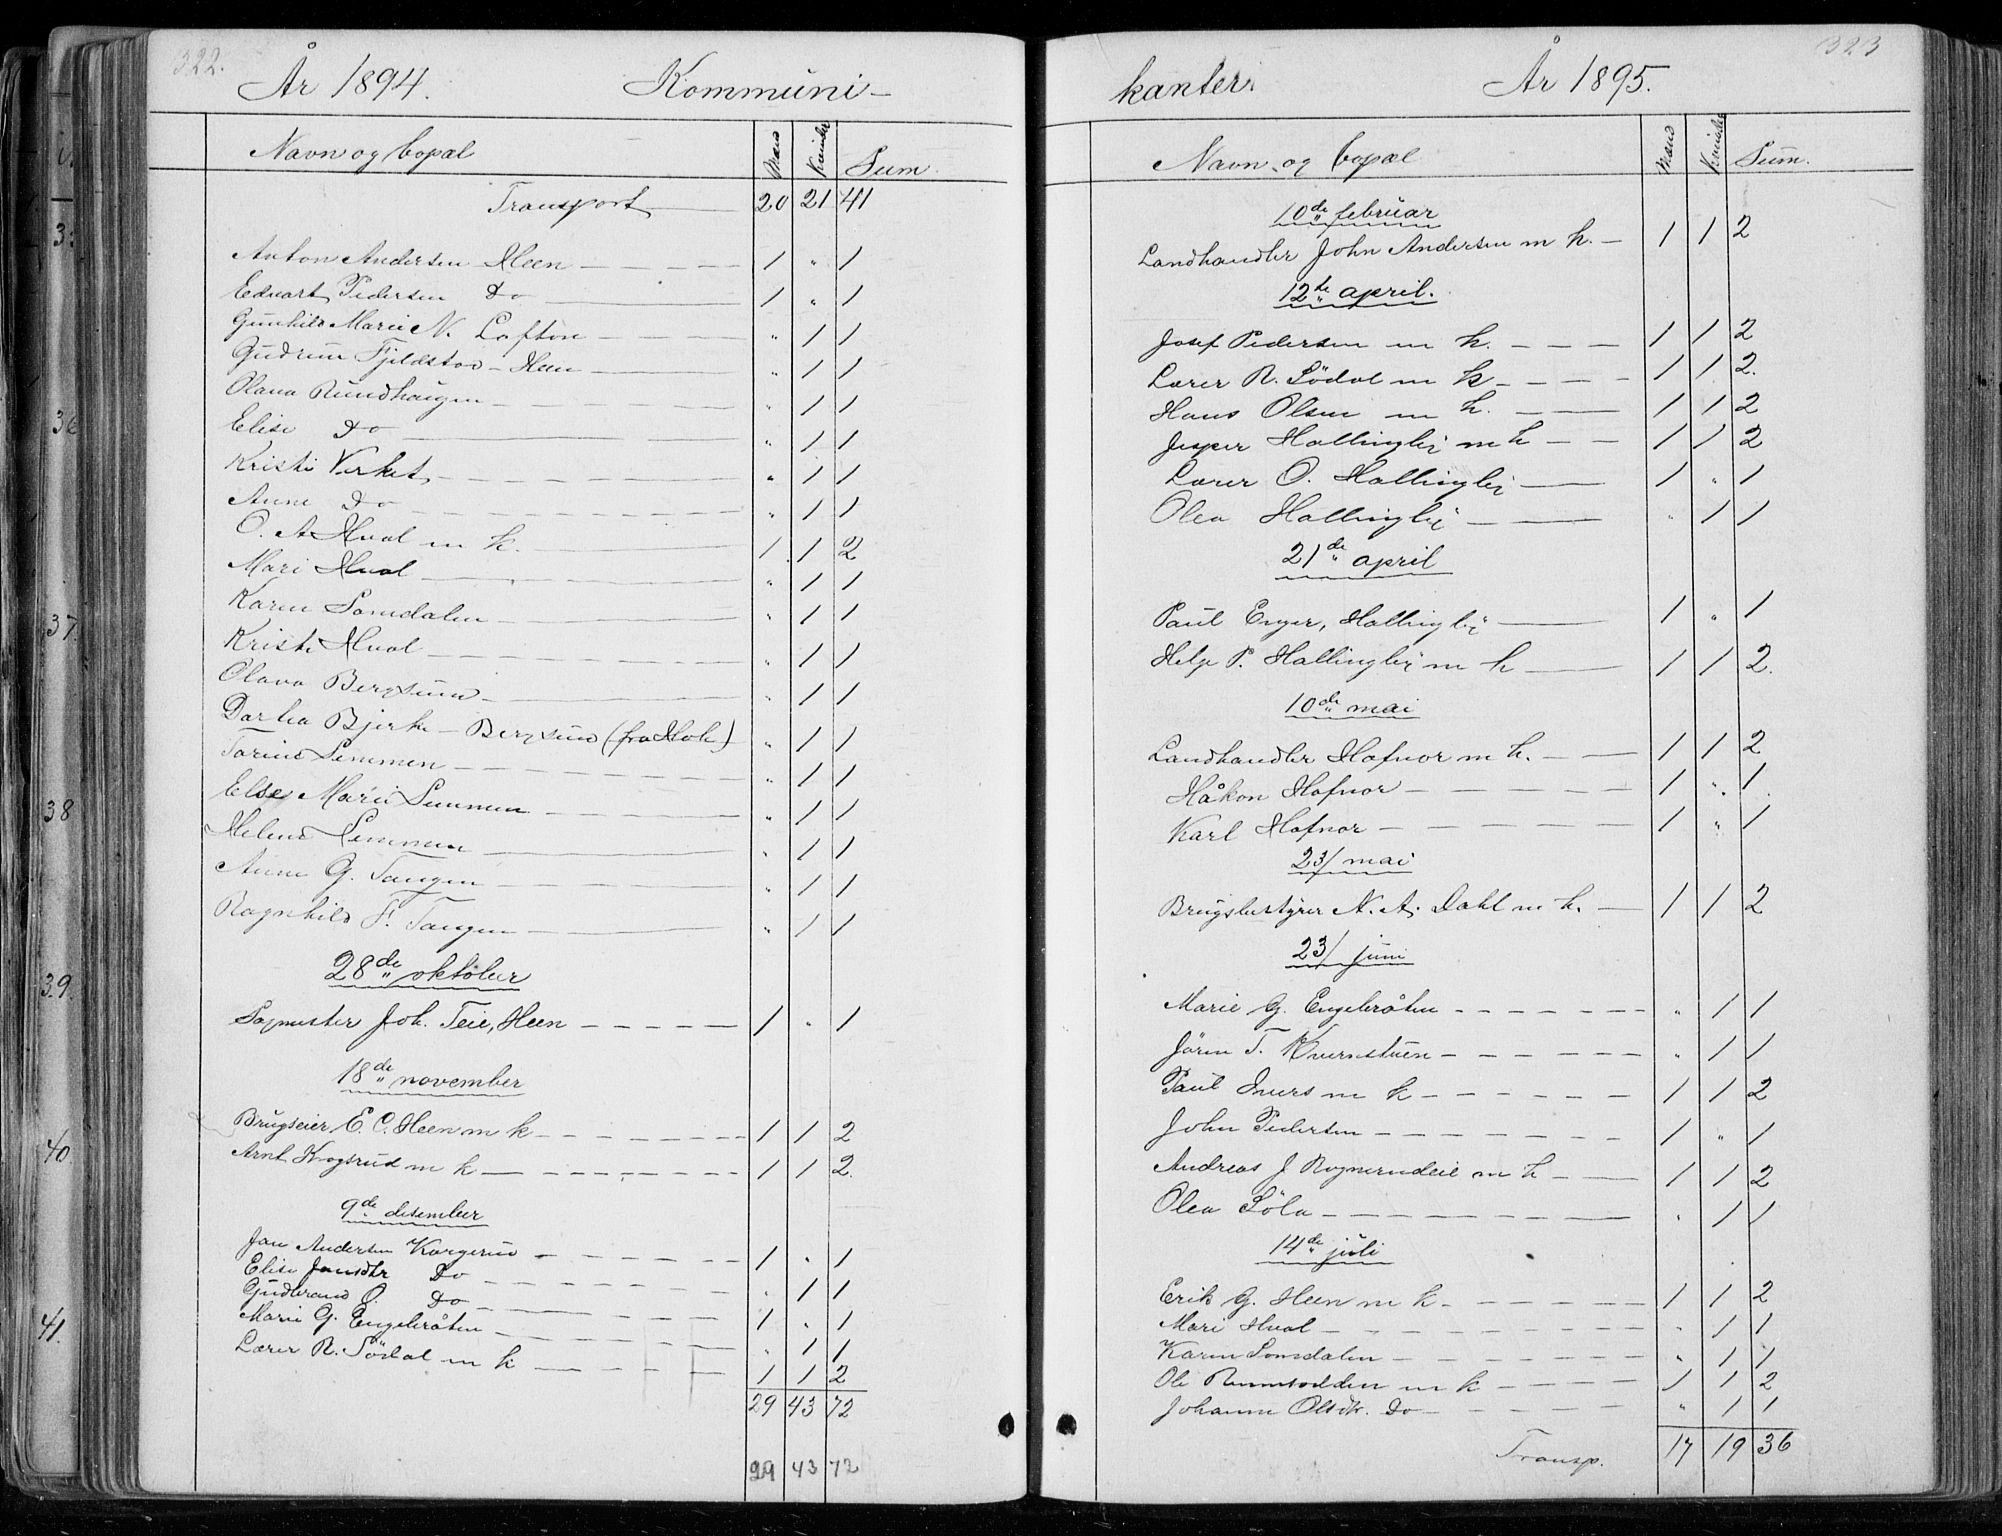 322.
År 1894. Kommuni-
Navn og bopæl Mænd Kvinder Sum.
Transport 20 21 41
Anton Andersen Heen 1 " 1
Edvart Pedersen Do 1 " 1
Gunhild Marie N. Loften " 1 1
Gudrun Fjeldstad - Heen " 1 1
Olava Rundhaugen " 1 1
Elise Do " 1 1
Kristi Verket " 1 1
Anne Do " 1 1
O. A Hval m k. 1 1 2
Mari Hval " 1 1
Karen Somdalen " 1 1
Kristi Hval " 1 1
Olava Bergsund " 1 1
Dorthea Bjerke - Bergsund (fra Hole) " 1 1
Torine Semmen " 1 1
Else Marie Semmen " 1 1
Helene Semmen " 1 1
Anne G. Tangen " 1 1
Ragnhild F. Tangen " 1 1
28de oktober
Sagmester Joh. Teie, Heen 1 " 1
18de november
Brugseier E. C. Heen m k 1 1 2
Arnt Krogsrud m k 1 1 2.
9de desember
Jan Andersen Korgerud 1 " 1
Elise Jansdtr Do " 1 1
Gudbrand O. Do 1 " 1
Marie G. Engebråten " 1 1
Lærer R. Södal m k 1 1 2
29 43 72
29 43 72
323
kanter. År 1895.
Navn og bopæl Mænd Kvinder Sum.
10de februar
Landhandler John Andersen m k. 1 1 2
12te april.
Josef Pedersen m k. 1 1 2
Lærer R. Södal m k 1 1 2.
Hans Olsen m k. 1 1 2
Jesper Hallingby m k 1 1 2
Lærer O. Hallingby 1 " 1
Olea Hallingby " 1 1
21de april
Paul Enger, Hallingby 1 " 1
Helge P. Hallingby m k 1 1 2.
10de mai
Landhandler Hofnor m k. 1 1 2
Håkon Hofnor 1 " 1
Karl Hofnor 1 " 1
23/ mai
Brugsbestyrer N. A. Dahl m k. 1 1 2
23/ juni
Marie G. Engebråten " 1 1
Jören T. Kvernstuen " 1 1
Paul Ivers m k 1 1 2
John Pedersen 1 " 1
Andreas J Rognerudeie m k 1 1 2
Olea Söla " 1 1
14de juli
Erik G. Heen m k 1 1 2
Mari Hval " 1 1
Karen Somdalen " 1 1
Ole m k 1 1 2
Johanne Olsdtr. Do " 1 1
Transp. 17 19 36
36
37.
38
39.
40.
41.